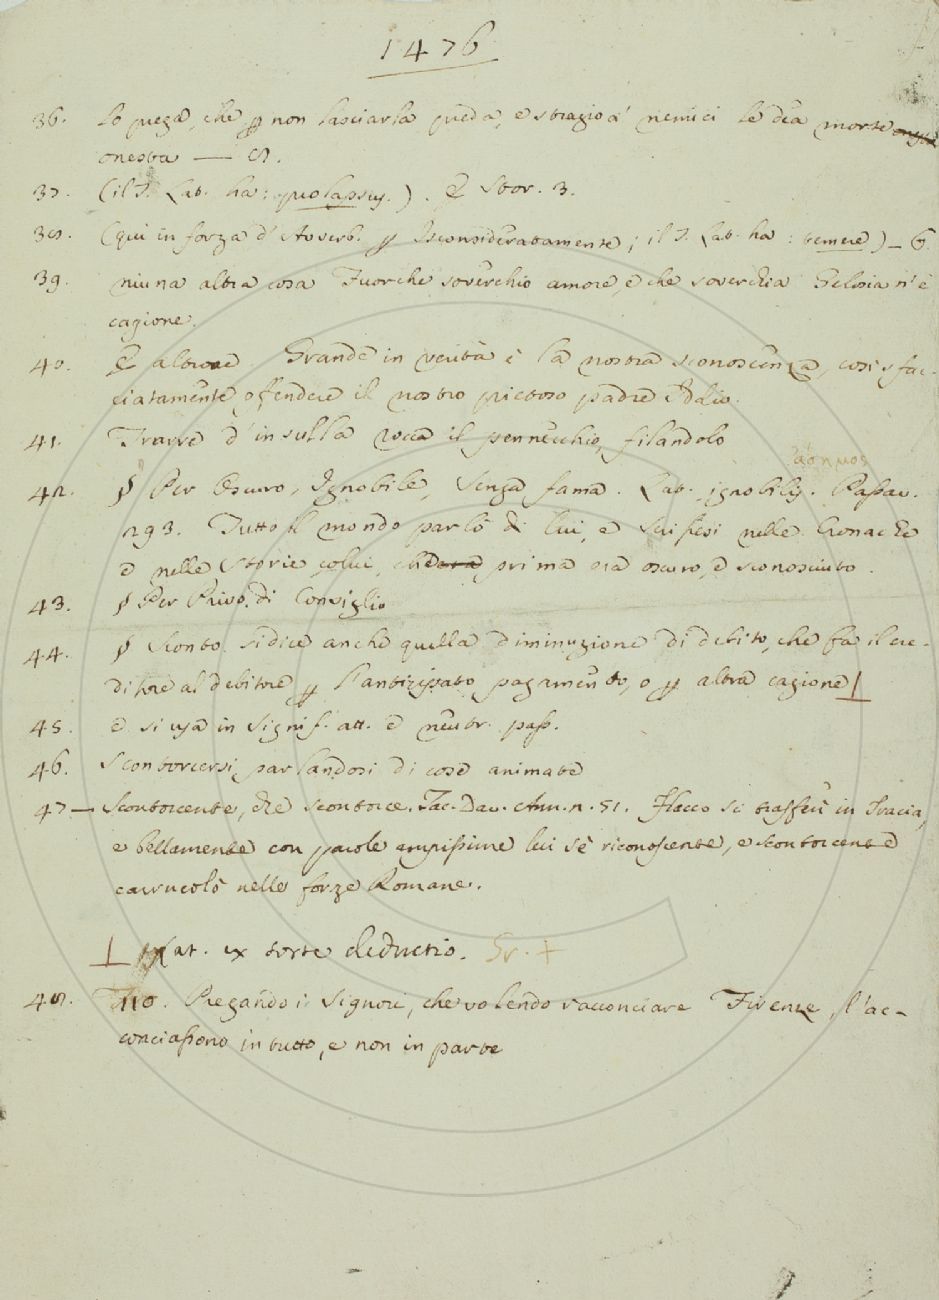 1476
36. Lo prega, che p non lasciarla preda, e strazio a' nemici le dia morte
onesta — S.
37. (il T. Lat. ha: prolapsus.). E Stor. 3.
38. (qui in forza d'Avverb. p Isconsideratamente; il T. Lat. ha: temere) — G.
39. niuna altra cosa Fuorche soverchio amore, e che soverchia Gelosia n'è
cagione.
40. E altrove. Grande in verità è la nostra sconoscenza, così sfac-
ciatamente offendere il nostro pietoso padre Iddio.
41. Trarre d'in sulla rocca il pennecchio, filandolo
42. § Per Oscuro, Ignobile, Senza fama. Lat. ignobilis. Passav.
293. Tutto il mondo parlò di lui, e scrissesi nelle Cronache
e nelle Storie colui, che prima era oscuro, e sconosciuto.
43. § Per Privo di Consiglio
44. § Sconto si dice anche quella diminuzione di debito, che fa il cre-
ditore al debitore p l'anticipato pagamento, o p altra cagione ⊥
45. e si usa in signif. att. e neutr. pass.
46. Scontorcersi, parlandosi di cose animate
47— Scontorcente, che scontorce. Tac. Dav. Ann. 2. 51. Flacco si trasferì in Tracia,
e bellamente con parole ampissime lui sè riconoscente, e scontorcente
carrucolò nelle forze Romane.
⊥ Lat. ex sorte deductio. Gr. +
48. 110. Pregando i Signori, che volendo racconciare Firenze, l'ac-
conciassono in tutto, e non in parte